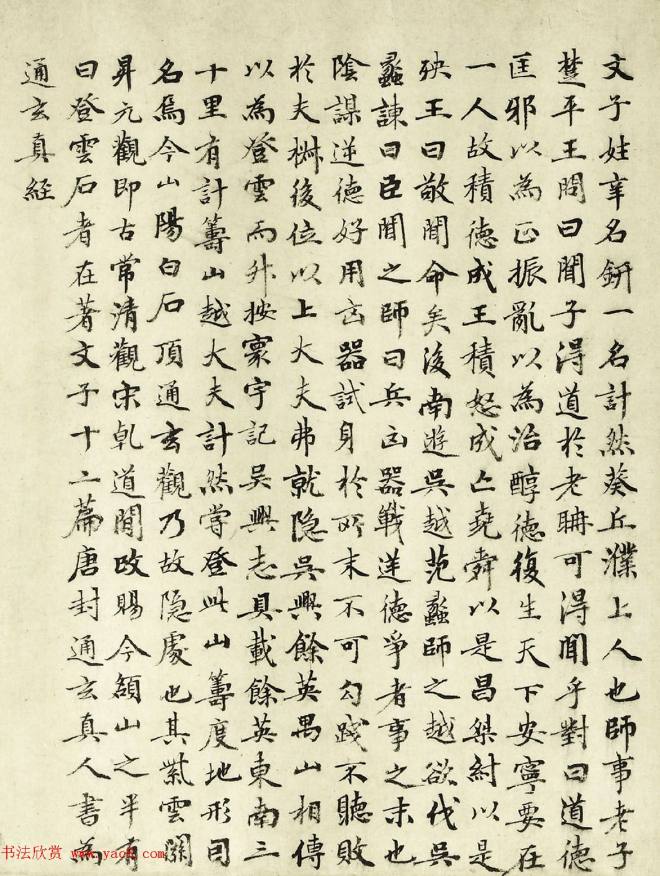 文子姓辛名鈃一名計然葵丘濮上人也師事老子
楚平王問曰聞子得道於老聃可得聞乎對曰道德
匡邪以為正振亂以為治醇德復生天下安寧要在
一人故積德成王積怒成亡堯舜以是昌桀紂以是
殃王曰敬聞命矣後南遊吳越范蠡師之越欲伐吳
蠡諫曰臣聞之師曰兵凶器戰逆德爭者事之末也
陰謀逆德好用凶器試身於所末不可勾踐不聽敗
於夫椒後位以上大夫弗就隱吳興餘英禺山相傳
以為登雲而升按寰宇記吳興志具載餘英東南三
十里有計籌山越大夫計然嘗登此山籌度地形因
名焉今山陽白石頂通玄觀乃故隱處也其紫雲關
昇元觀即古常清觀宋乾道間改賜今額山之半有
曰登雲石者在著文子十二篇唐封通玄真人書為
通玄真經
书法欣赏 www.yac8.com